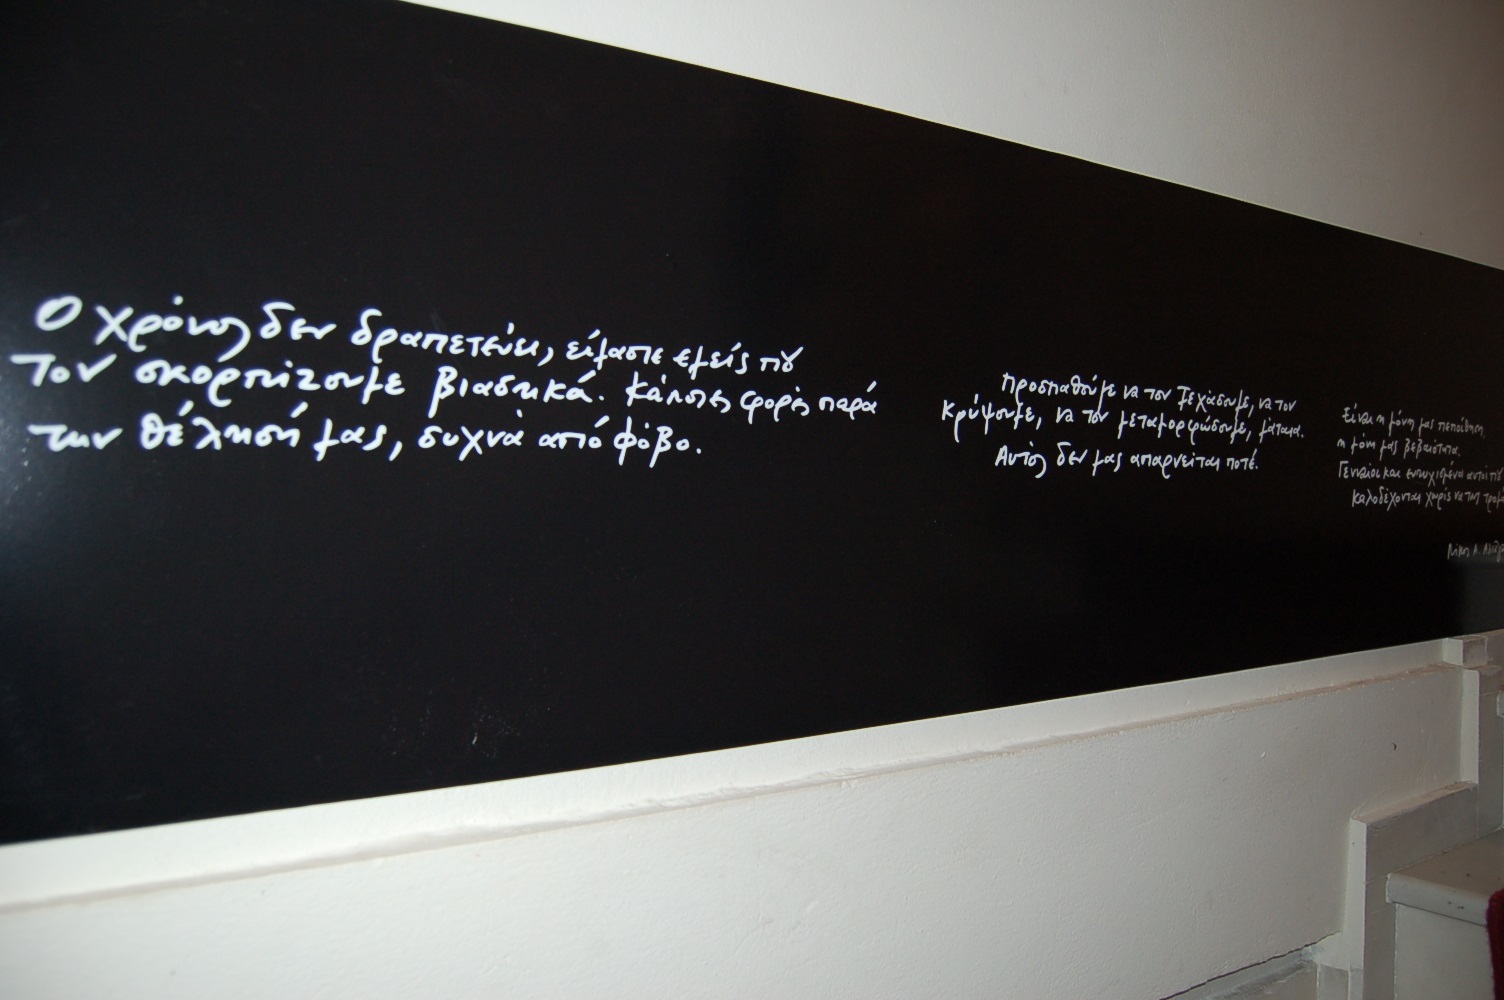 Ο χρόνος δεν δραπετεύει, είμαστε εμείς που
τον σκορπίζουμε βιαστικά. Κάποιες φορές παρά
την θέλησή μας, συχνά από φόβο.
Προσπαθούμε να τον ξεχάσουμε, να τον
κρύψουμε, να τον μεταμορφώσουμε, μάταια.
Αυτός δεν μας απαρνείται ποτέ.
Είναι η μόνη μας πεποίθηση,
η μόνη μας βεβαιότητα.
Γενναίοι και ευτυχισμένοι αυτοί που
καλοδέχονται χωρίς να την
Νίκος Α.